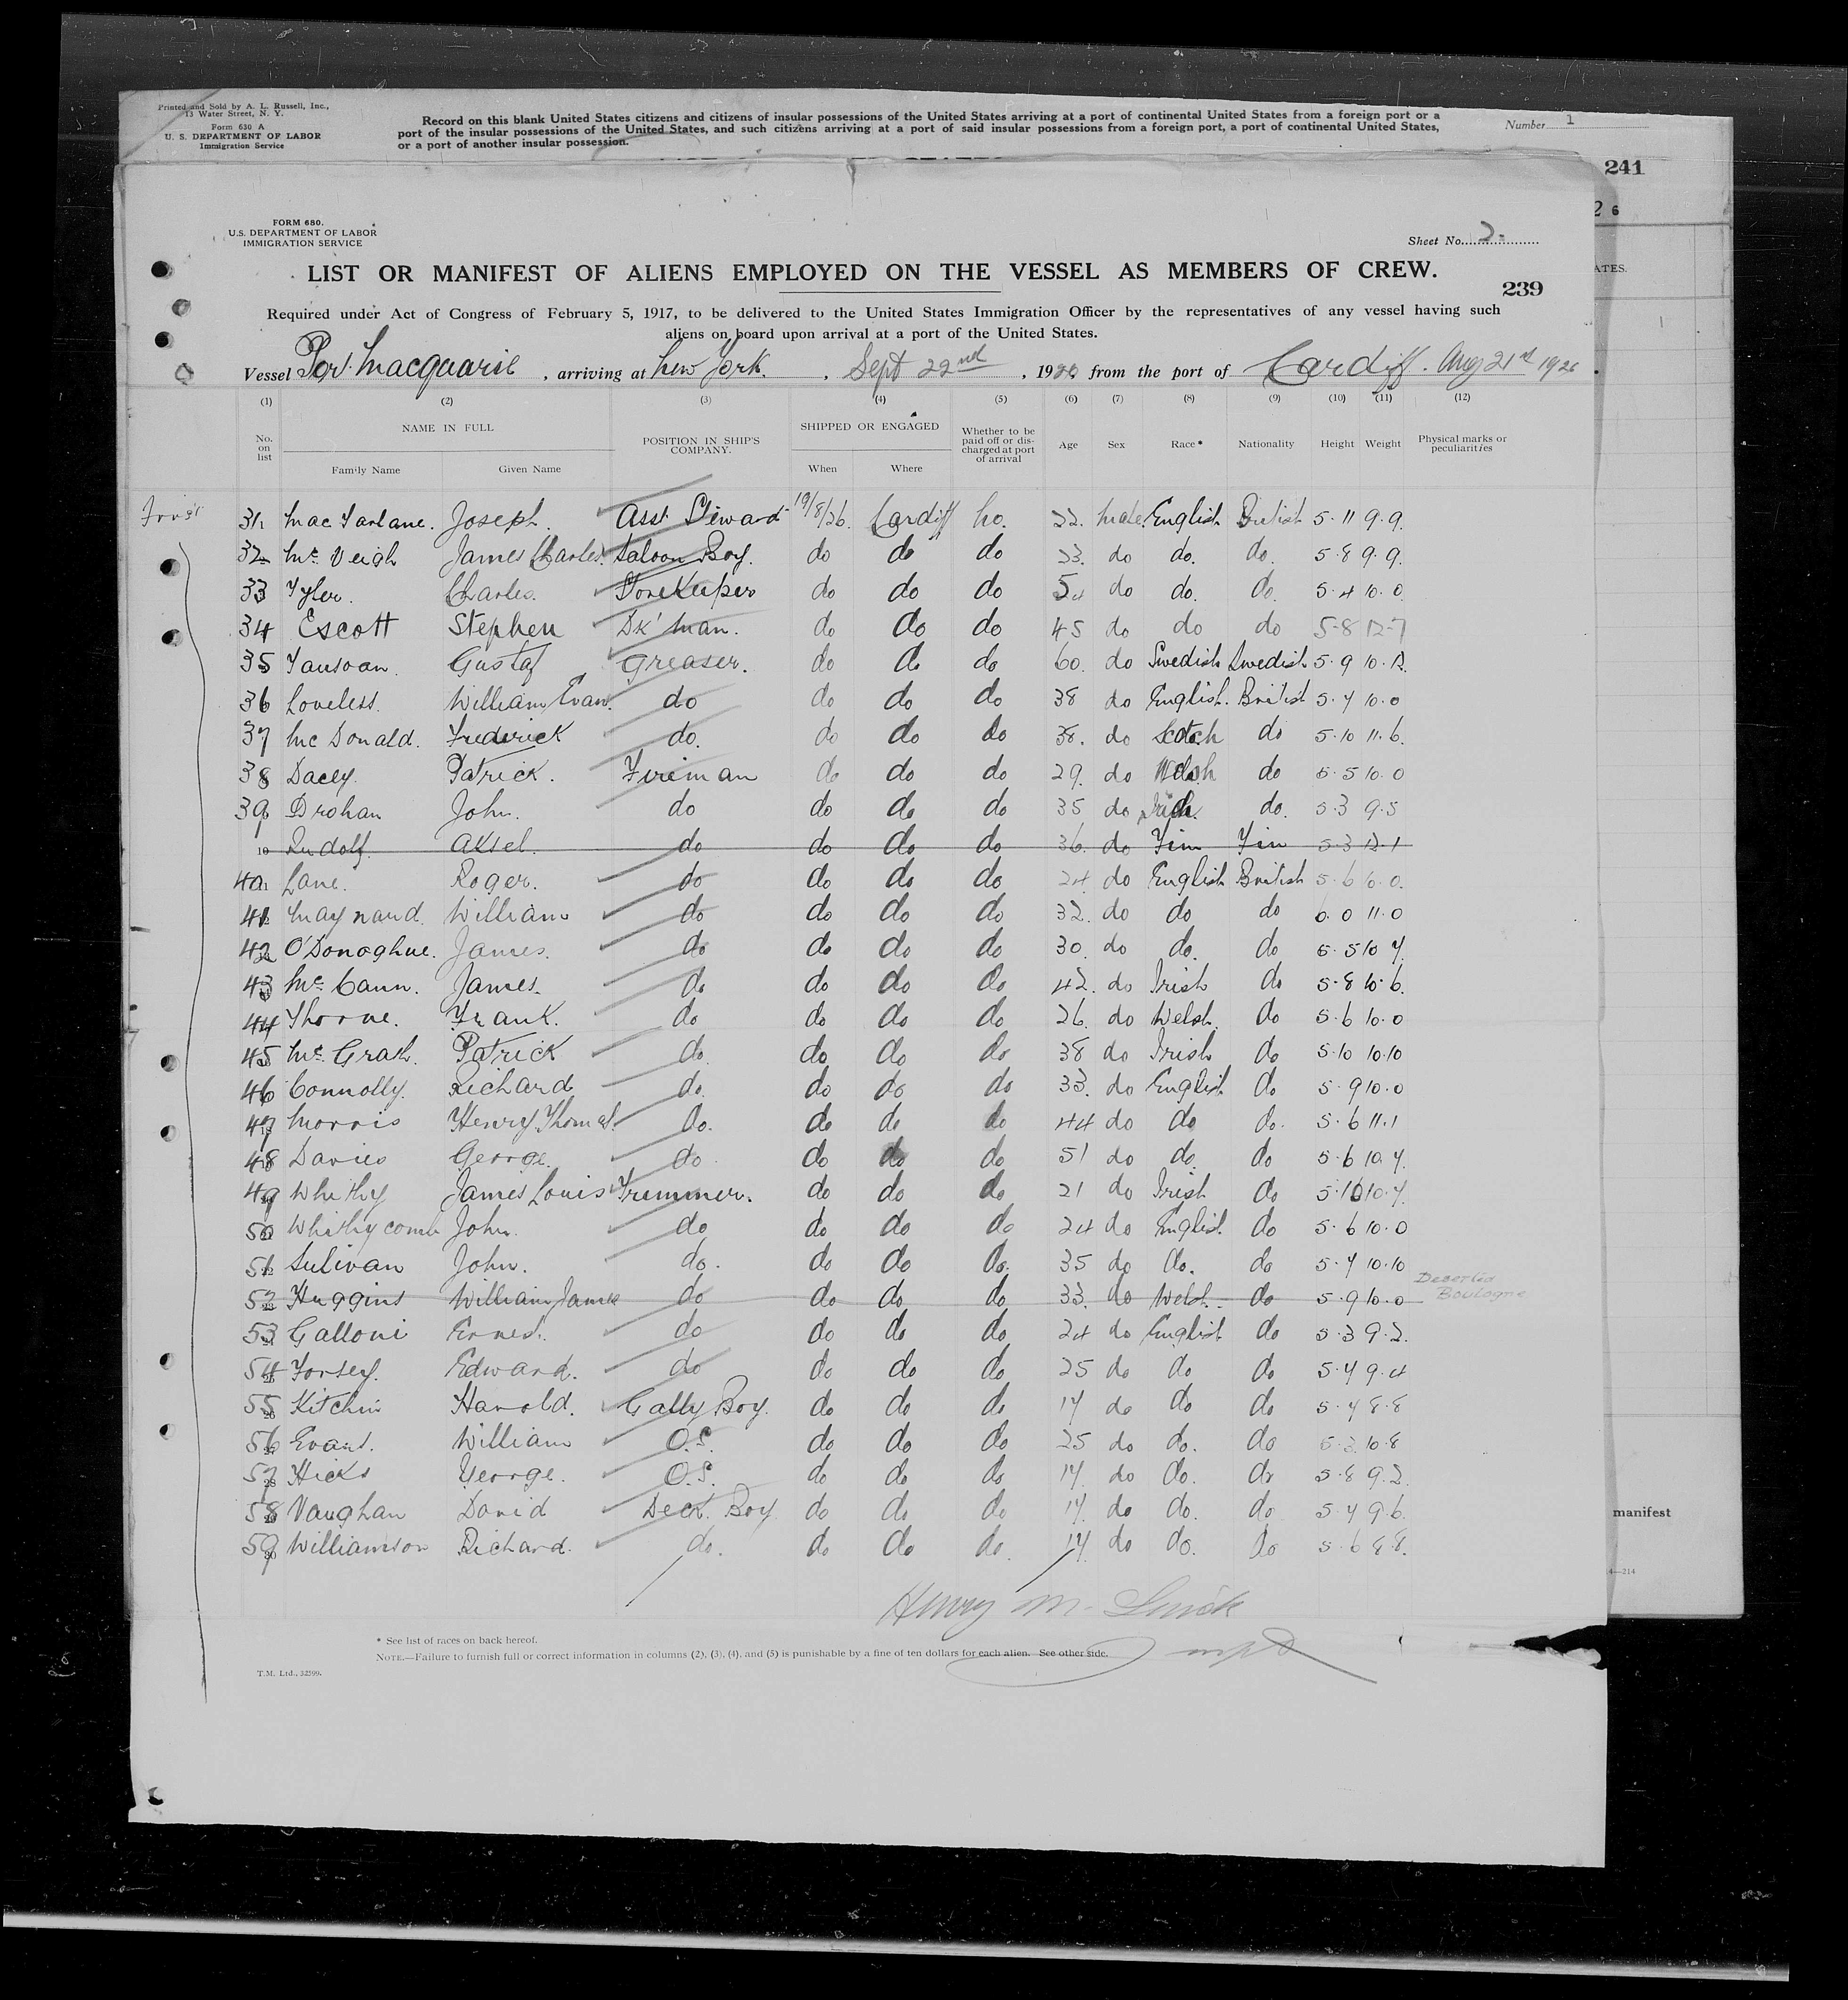 Printed and Sold by A. L. Russell, Inc.,
13 Water Street, N. Y.
Form 630 A
U. S. DEPARTMENT OF LABOR
Immigration Service
Record on this blank United States citizens and citizens of insular possessions of the United States arriving at a port of continental United States from a foreign port or a
port of the insular possessions of the United States, and such citizens arriving at a port of said insular possessions from a foreign port, a port of continental United States,
or a port of another insular possession.
Number 1
241
2 6
ATES.
FORM 680.
U.S. DEPARTMENT OF LABOR
IMMIGRATION SERVICE
Sheet No. 2.
LIST OR MANIFEST OF ALIENS EMPLOYED ON THE VESSEL AS MEMBERS OF CREW.
239
Required under Act of Congress of February 5, 1917, to be delivered to the United States Immigration Officer by the representatives of any vessel having such
aliens on board upon arrival at a port of the United States.
Vessel Port Macquarie, arriving at New York., Sept 22nd, 1926 from the port of Cardiff. Aug 21st 1926
(1) (2) (3) (4) (5) (6) (7) (8) (9) (10) (11) (12)
No. on list NAME IN FULL Family Name Given Name POSITION IN SHIP'S COMPANY. SHIPPED OR ENGAGED When Where Whether to be paid off or discharged at port of arrival Age Sex Race* Nationality Height Weight Physical marks or peculiarities
31 Mac Farlane. Joseph. Asst Steward 19/8/26. Cardiff No. 22. Male. English British 5-11 9.9.
32 Mc Veigh James Charles. Saloon Boy. do do do 23. do do. do. 5-8 9.9.
33 Tyler. Charles. Storekeeper do do do 54 do do. do. 5-4 10.0
34 Escott Stephen Dk' Man. do do do 45 do do do 5-8 12-7
35 Gustaf Greaser. do do do 60. do Swedish Swedish 5.9 10.12
36 Loveless. William Evan. do do do do 38 do English. British 5.7 10.0
37 Mc Donald. Frederick do. do do do 38. do Scotch do 5.10 11.6.
38 Dacey. Patrick. Fireman do do do 29. do Welsh do 5.5 10.0
39 Drohan John. do do do do 35 do Irish. do. 5.3 9.5
10 Rudolf. Aksel. do do do do 36. do Finn Finn 5-3 12.1
40 Lane. Roger. do do do do 24. do English British 5.6 10.0.
41 Maynard. William do do do do 32. do do do 6.0 11.0
42 O'Donoghue. James. do do do do 30. do do. do 5.5 10 7.
43 Mc Cann. James. do do do do 42. do Irish do 5.8 10.6.
44 Thorne. Frank. do do do do 26. do Welsh. do 5.6 10.0
45 Mc Grath. Patrick do. do do do 38 do Irish do 5.10 10.10
46 Connolly. Richard do. do do do 33. do English do 5.9 10.0
47 Morris Henry Thomas. do. do do do 44 do do do. 5.6 11.1
48 Davies George. do do do do 51 do do. do 5.6 10.7.
49 Whithy James Louis Trimmer. do do do 21 do Irish do 5.10 10.7.
50 Whithycomb John. do do do do 24 do English. do 5.6 10.0
51 Sulivan John. do. do do do. 35 do do. do 5.7 10.10
52 Huggins William James do do do do 33. do Welsh. do 5.9 10.0 Deserted
Boulogne
53 Galloni Ernest. do do do do 24 do English do 5.3 9.2.
54 Forsey. Edward. do do do do 25 do do do 5.7 9.4
55 Kitchin Harold. Gally Boy. do do do 17 do do do 5.7 8.8
56 Evans. William O.S. do do do 25 do do. do 5.3. 10.8
57 Hicks George. O.S. do do do 17. do do. do 5.8 9.2.
58 Vaughan David Deck Boy do do do 17. do do. do 5.7 9.6.
59 Williamson Richard. do. do do do. 17. do do. do 5.6 8.8.
Henry M.
* See list of races on back hereof.
NOTE.—Failure to furnish full or correct information in columns (2), (3), (4), and (5) is punishable by a fine of ten dollars for each alien. See other side.
T.M. Ltd., 32599.
manifest
4—214